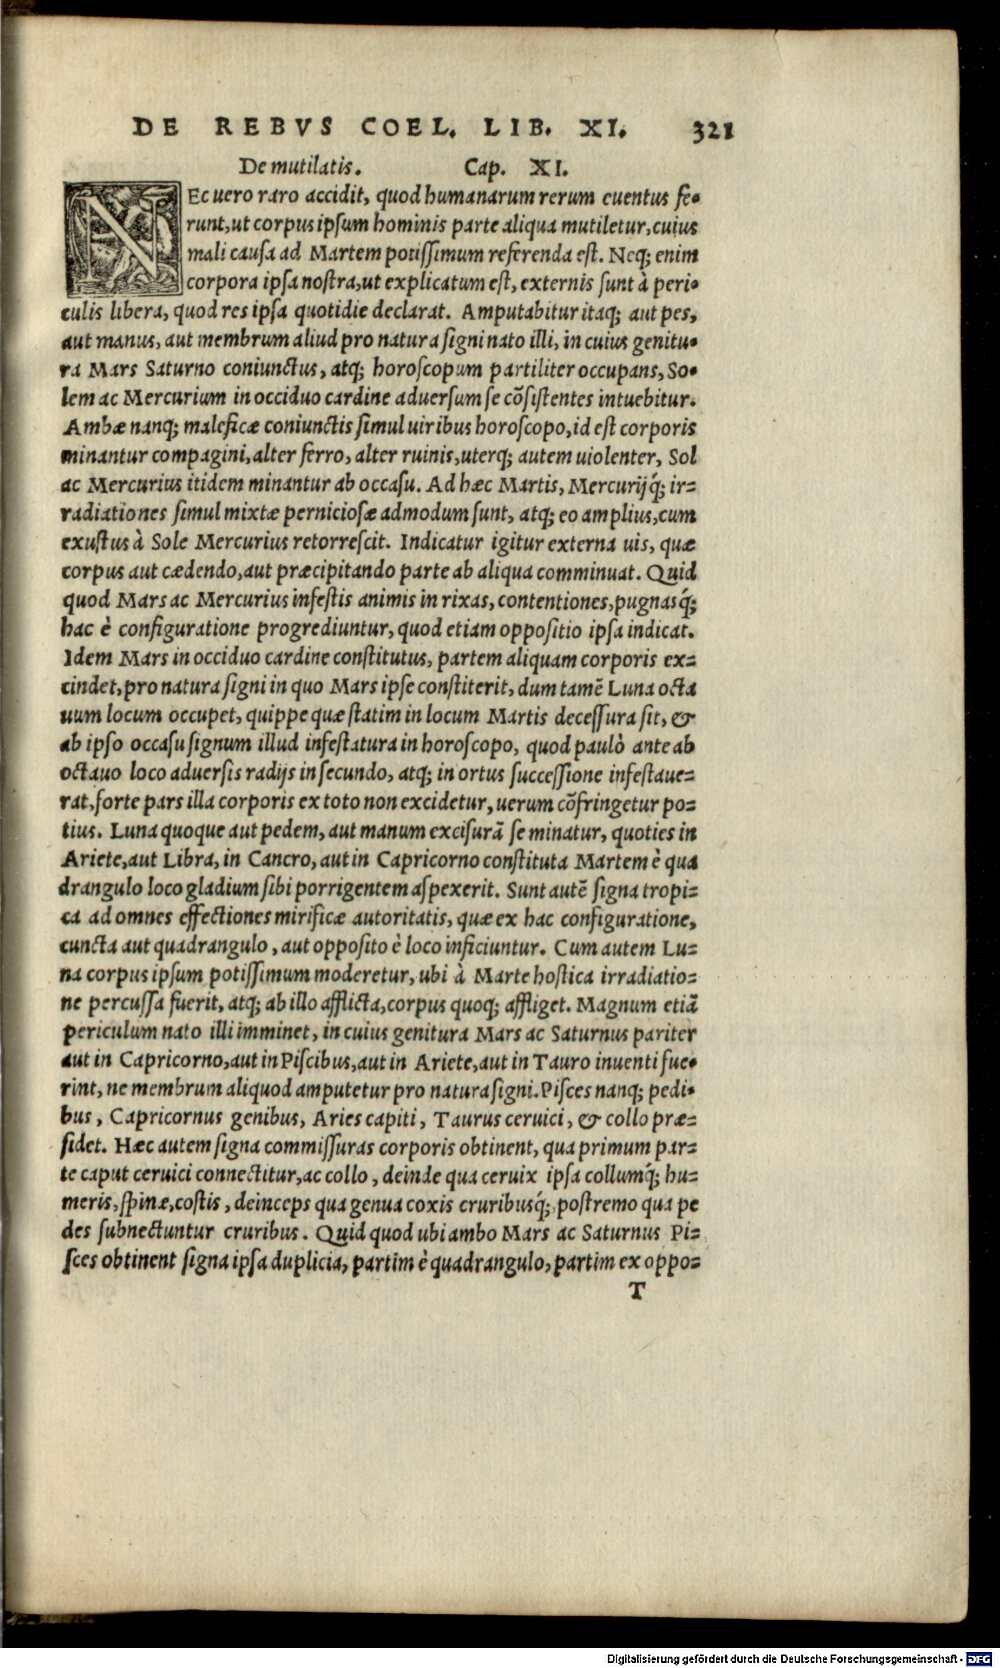 DE REBVS COEL. LIB. XI. 321
De mutilatis. Cap. XI.
NEc uero raro accidit, quod humanarum rerum euentus fe-
runt, ut corpus ipsum hominis parte aliqua mutiletur, cuius
mali causa ad Martem potissimum referenda est. Neq; enim
corpora ipsa nostra, ut explicatum est, externis sunt à peri-
culis libera, quod res ipsa quotidie declarat. Amputabitur itaq; aut pes,
aut manus, aut membrum aliud pro natura signi nato illi, in cuius genitu-
ra Mars Saturno coniunctus, atq; horoscopum partiliter occupans, So-
lem ac Mercurium in occiduo cardine aduersum se cõsistentes intuebitur.
Ambæ nanq; maleficæ coniunctis simul uiribus horoscopo, id est corporis
minantur compagini, alter ferro, alter ruinis, uterq; autem uiolenter, Sol
ac Mercurius itidem minantur ab occasu. Ad hæc Martis, Mercurijq́; ir-
radiationes simul mixtæ perniciosæ admodum sunt, atq; eo amplius, cum
exustus à Sole Mercurius retorrescit. Indicatur igitur externa uis, quæ
corpus aut cædendo, aut præcipitando parte ab aliqua comminuat. Quid
quod Mars ac Mercurius infestis animis in rixas, contentiones, pugnasq́;
hac è configuratione progrediuntur, quod etiam oppositio ipsa indicat.
Idem Mars in occiduo cardine constitutus, partem aliquam corporis ex-
cindet, pro natura signi in quo Mars ipse constiterit, dum tamẽ Luna octa
uum locum occupet, quippe quæ statim in locum Martis decessura sit, &
ab ipso occasu signum illud infestatura in horoscopo, quod paulò ante ab
octauo loco aduersis radijs in secundo, atq; in ortus successione infestaue-
rat, forte pars illa corporis ex toto non excidetur, uerum cõfringetur po-
tius. Luna quoque aut pedem, aut manum excisurã se minatur, quoties in
Ariete, aut Libra, in Cancro, aut in Capricorno constituta Martem è qua
drangulo loco gladium sibi porrigentem aspexerit. Sunt autẽ signa tropi-
ca ad omnes effectiones mirificæ autoritatis, quæ ex hac configuratione,
cuncta aut quadrangulo, aut opposito è loco inficiuntur. Cum autem Lu-
na corpus ipsum potissimum moderetur, ubi à Marte hostica irradiatio-
ne percussa fuerit, atq; ab illo afflicta, corpus quoq; affliget. Magnum etiã
periculum nato illi imminet, in cuius genitura Mars ac Saturnus pariter
aut in Capricorno, aut in Piscibus, aut in Ariete, aut in Tauro inuenti fue-
rint, ne membrum aliquod amputetur pro natura signi. Pisces nanq; pedi-
bus, Capricornus genibus, Aries capiti, Taurus ceruici, & collo præ-
sidet. Hæc autem signa commissuras corporis obtinent, qua primum par-
te caput ceruici connectitur, ac collo, deinde qua ceruix ipsa collumq́; hu-
meris, spinæ, costis, deinceps qua genua coxis cruribusq́; postremo qua pe
des subnectuntur cruribus. Quid quod ubi ambo Mars ac Saturnus Pi-
sces obtinent signa ipsa duplicia, partim è quadrangulo, partim ex oppo-
T
Digitalisierung gefördert durch die Deutsche Forschungsgemeinschaft - DFG